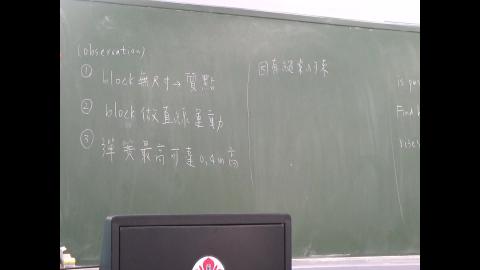 (observation)
① block無尺寸→質點
② block做直線運動
③ 彈簧最高可達0.4m高
因有繩索以下來
is
Find